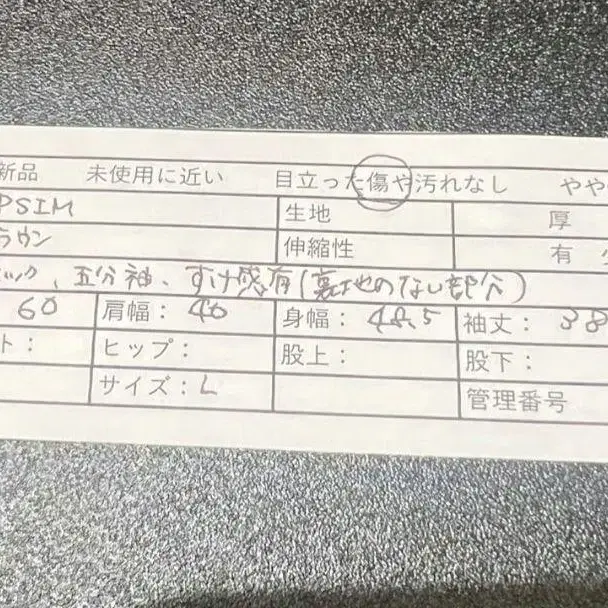 新品 未使用に近い 目立った傷や汚れなし やや
PSIM 生地 厚
ラウン 伸縮性 有
ック、五分袖、すけ感有(裏地のない部分)
60 肩幅: 40 身幅: 48.5 袖丈: 38
ト: ヒップ: 股上: 股下:
サイズ: L 管理番号